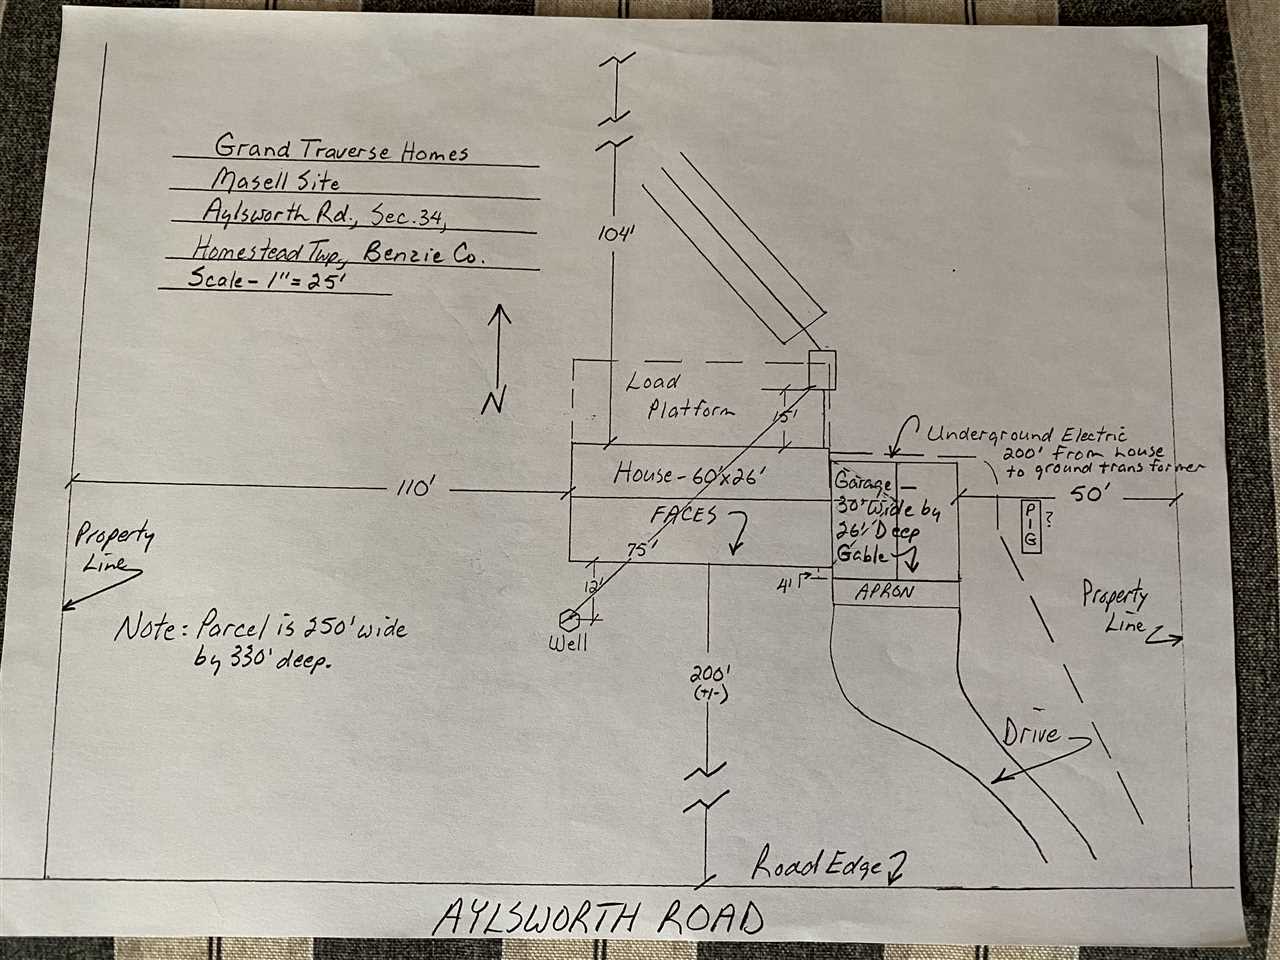 Grand Traverse Homes
Masell Site
Aylsworth Rd., Sec. 34,
Homestead Twp., Benzie Co.
Scale - 1" = 25'
N
104'
Load
Platform
15'
Underground Electric
200' from house
to ground transformer
House - 60'x26'
110'
Garage -
30' Wide by
26' Deep
Gable
50'
PIG
?
FACES
75'
Property
Line
12'
4'
APRON
Property
Line
Note: Parcel is 250' wide
by 330' deep.
Well
200'
(+/-)
Drive
Road Edge
AYLSWORTH ROAD